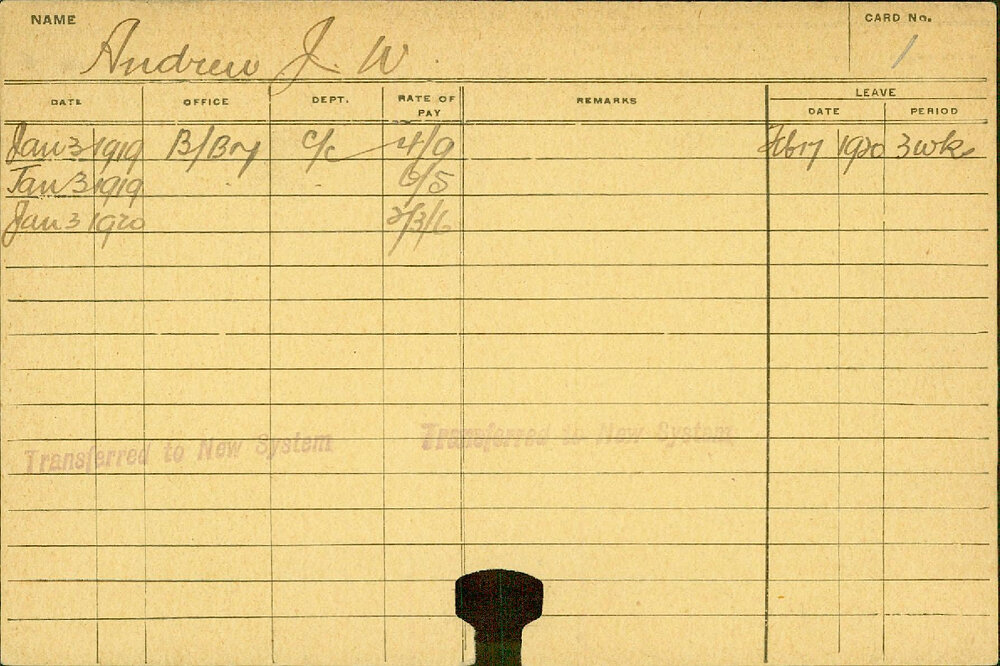 NAME Andrew J. W. CARD No. 1
LEAVE
DATE OFFICE DEPT. RATE OF PAY REMARKS DATE PERIOD
Jan 3 1919 B/Bry C/c 4/9 Feb 17 1920 3 wks
Jan 3 1919 6/5
Jan 3 1920 /3/6
Transferred to New System Transferred to New System